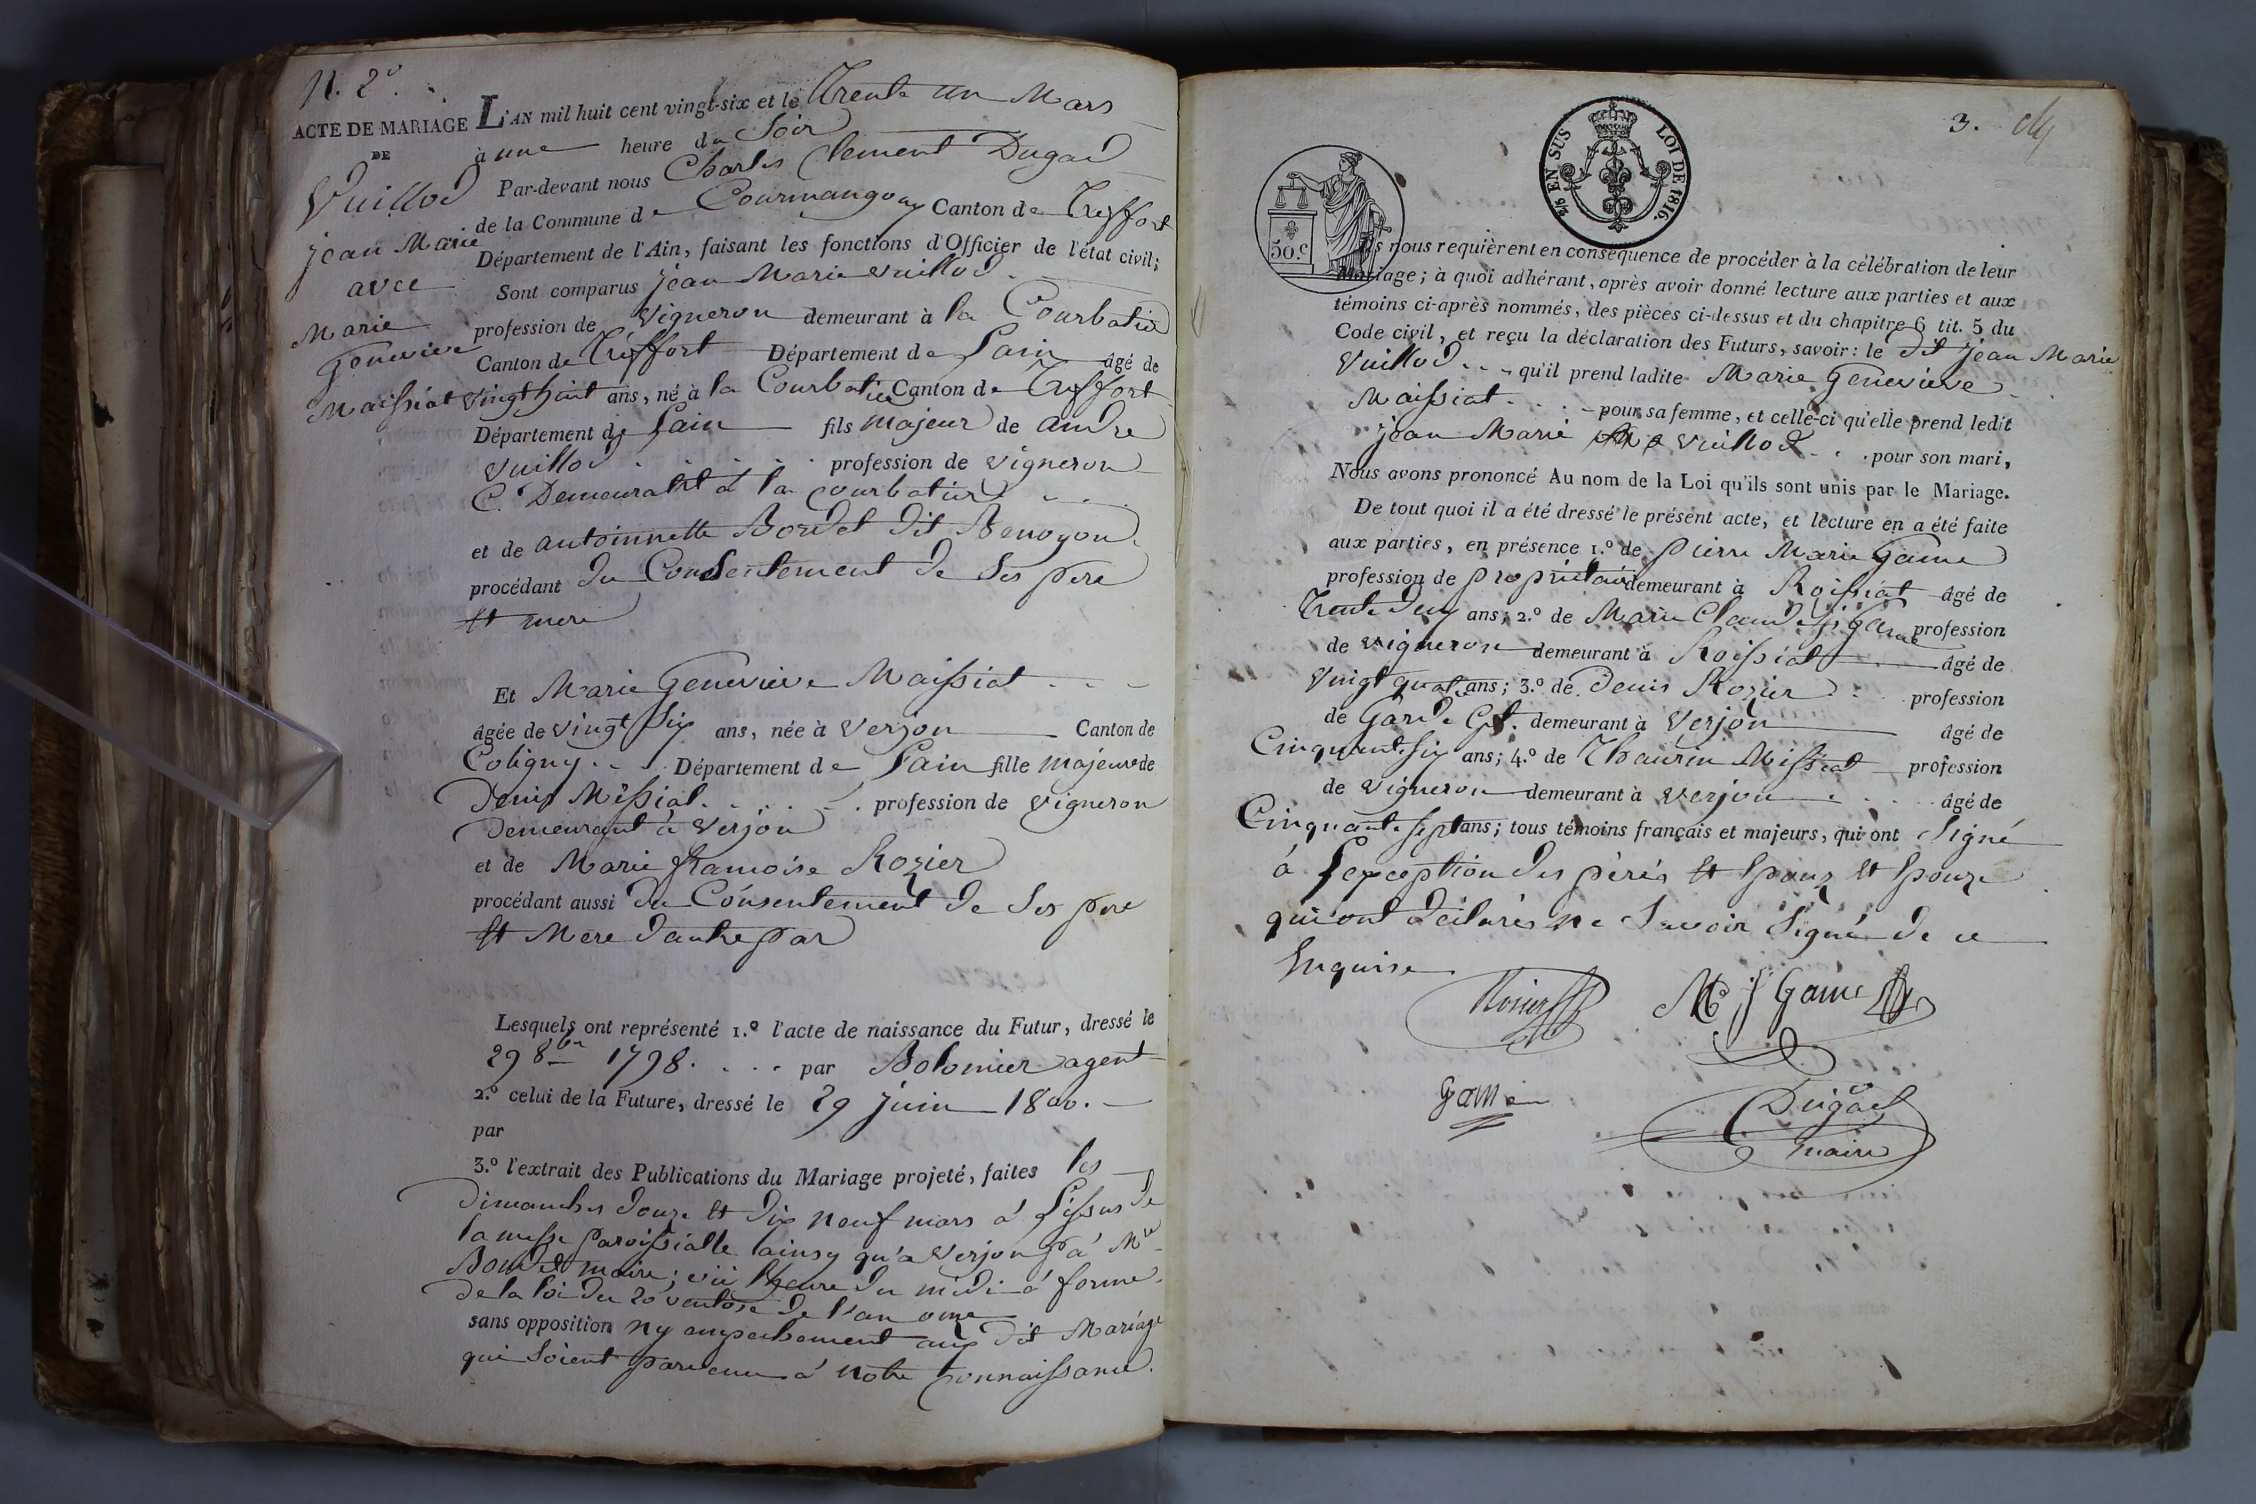 N. 2°.
ACTE DE MARIAGE
DE
Vuillod
jean Marie
avec
Marie
Genevieve
Maissiat
L'AN mil huit cent vingt-six et le Trente un Mars
à une heure du Soir
Par-devant nous Charles Clement Dugad
de la Commune de Courmangoux Canton de Treffort
Département de l'Ain, faisant les fonctions d'Officier de l'état civil;
Sont comparus jean Marie Vuillod
profession de vigneron demeurant à la Courbatiere
Canton de Treffort Département de Lain âgé de
vingt huit ans, né à la Courbatiere Canton de Treffort
Département de Lain fils majeur de andre
Vuillod profession de vigneron
Demeurant à la courbatiere
et de antoinnette Bordet dit Benoyon
procédant du Consentement de Ses pere
Et mere
Et Marie Genevieve Maissiat
âgée de vingt Six ans, née à Verjon Canton de
Coligny Département de Lain fille majeure de
Denis Missiat profession de vigneron
Demeurant à Verjon
et de Marie francoise Rozier
procédant aussi du Consentement de Ses pere
Et Mere d'autre par
Lesquels ont représenté 1.º l'acte de naissance du Futur, dressé le
29 8bre 1798. par Bolomier agent
2.º celui de la Future, dressé le 29 juin 1800.
par
3.º l'extrait des Publications du Mariage projeté, faites les
Dimanches douze Et dix neuf mars à Lissus de
la messe paroissialle ainsy qu'a Verjon pa Mr
maire; heure du midi à forme
de la loi du 20 ventose de l'an onze
sans opposition ny empechement aux dit Mariage
qui Soient parvenu à notre Connaissance.
3.
2/5 EN SUS
LOI DE 1816.
50.c
Ils nous requièrent en conséquence de procéder à la célébration de leur
Mariage; à quoi adhérant, après avoir donné lecture aux parties et aux
témoins ci-après nommés, des pièces ci-dessus et du chapitre 6 tit. 5 du
Code civil, et reçu la déclaration des Futurs, savoir: le dit jean Marie
Vuillod qu'il prend ladite Marie Genevieve
Maissiat pour sa femme, et celle-ci qu'elle prend ledit
jean Marie Vuillod pour son mari,
Nous avons prononcé Au nom de la Loi qu'ils sont unis par le Mariage.
De tout quoi il a été dressé le présent acte, et lecture en a été faite
aux parties, en présence 1.º de pierre Marie Game
profession de proprietaire demeurant à Roissiat âgé de
Trente deux ans; 2.º de Marie Claude Game profession
de vigneron demeurant à Roissiat âgé de
Vingt quatre ans; 3.º de Denis Rozier profession
de Garde demeurant à Verjon âgé de
Cinquante Six ans; 4.º de Thaurin Missiat profession
de vigneron demeurant à verjon âgé de
Cinquante Sept ans; tous témoins français et majeurs, qui ont Signé
à Lexception des pères Et Epoux Et Epouze
qui ont déclarés ne Savoir Signé de ce
Enquise
Rozier
M j Game
Game
Dugad
maire